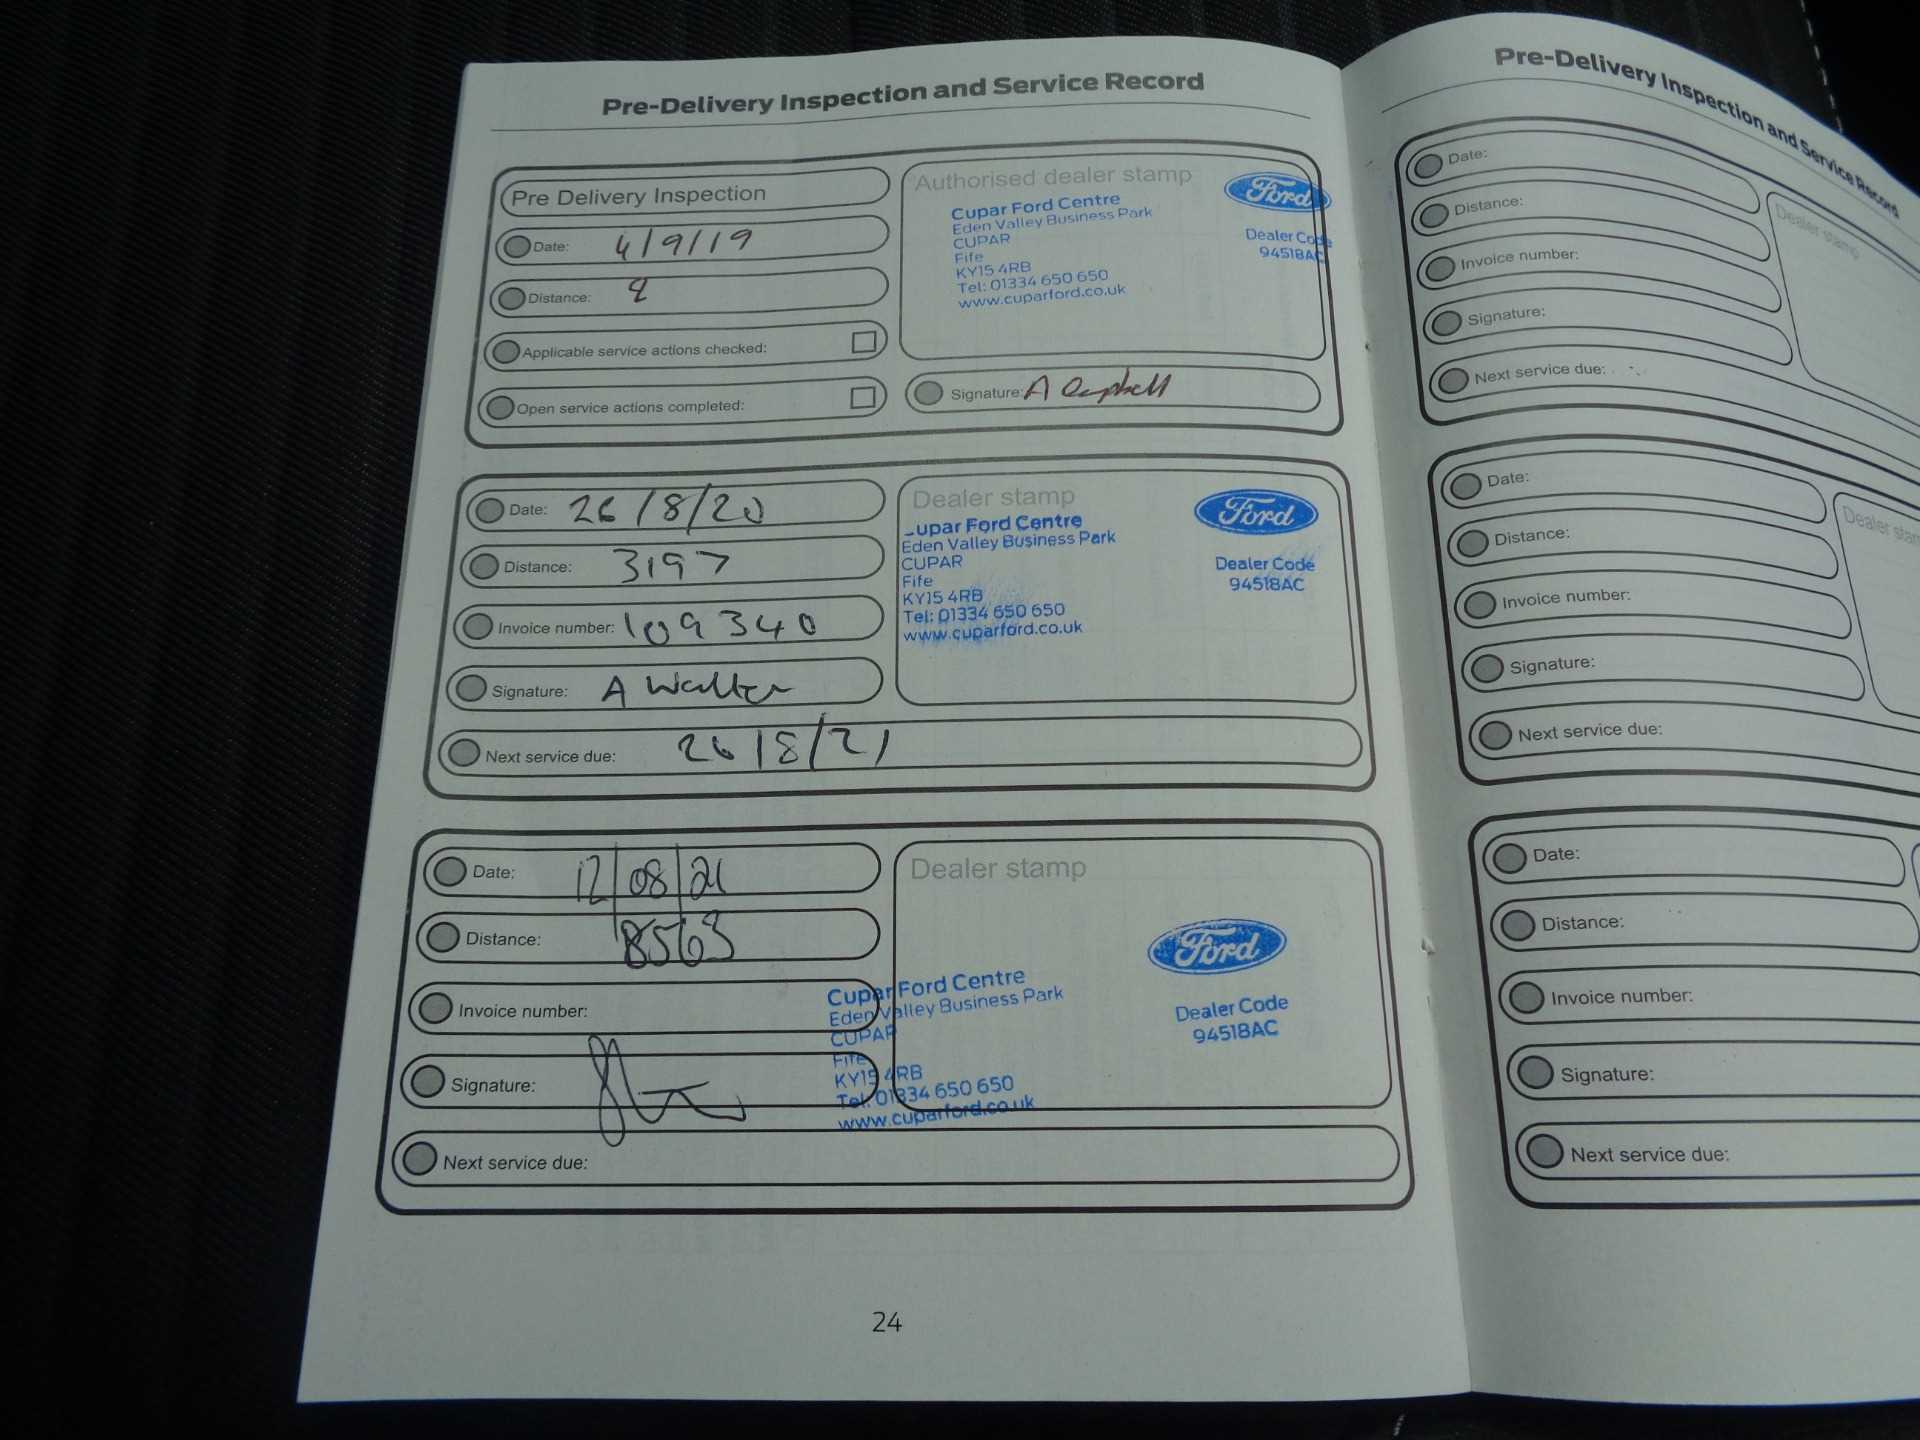 Pre-Delivery Inspection and Service Record
Pre Delivery Inspection
Date: 4/9/19
Distance: 8
Applicable service actions checked:
Open service actions completed:
Authorised dealer stamp
Ford
Cupar Ford Centre
Eden Valley Business Park
CUPAR
Fife
KY15 4RB
Tel: 01334 650 650
www.cuparford.co.uk
Dealer Code
94518AC
Signature: A Campbell
Date: 26/8/20
Distance: 3197
Invoice number: 109340
Signature: A Walker
Next service due: 26/8/21
Dealer stamp
Ford
Cupar Ford Centre
Eden Valley Business Park
CUPAR
Fife
KY15 4RB
Tel: 01334 650 650
www.cuparford.co.uk
Dealer Code
94518AC
Date: 12/08/21
Distance: 8563
Invoice number:
Signature:
Next service due:
Dealer stamp
Ford
Cupar Ford Centre
Eden Valley Business Park
CUPAR
Fife
KY15 4RB
Tel: 01334 650 650
www.cuparford.co.uk
Dealer Code
94518AC
24
Pre-Delivery Inspection and Service Record
Date:
Distance:
Invoice number:
Signature:
Next service due:
Dealer stamp
Date:
Distance:
Invoice number:
Signature:
Next service due:
Dealer
Date:
Distance:
Invoice number:
Signature:
Next service due: